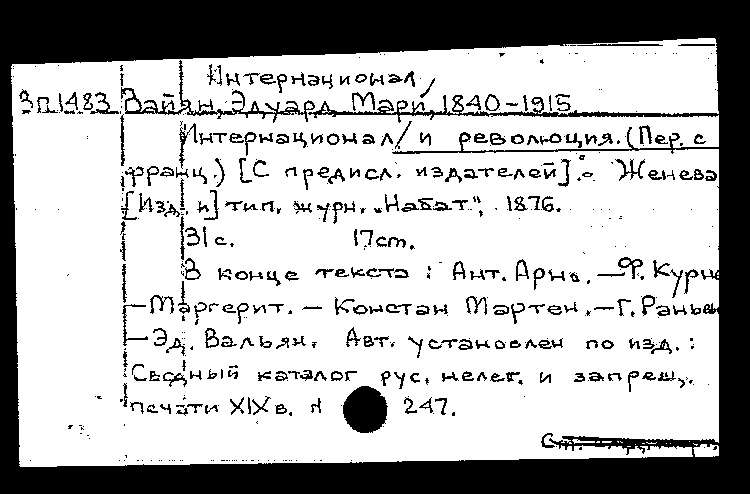 Интернационал /
Зп1483 Вайян, Эдуард Мари, 1840-1915.
Интернационал/ и революция. (Пер. с
франц.) [С предисл. издателей]. Женева
[Изд. и] тип. журн. „Набат", 1876.
31с. 17ст.
В конце текста : Ант. Арно. - Ф. Курне
- Маргерит. - Констан Мартен. - Г. Ранвье
- Эд. Вальян. Авт. установлен по изд. :
Сводный каталог рус. нелег. и запрещ.
печати XIX в. 247.